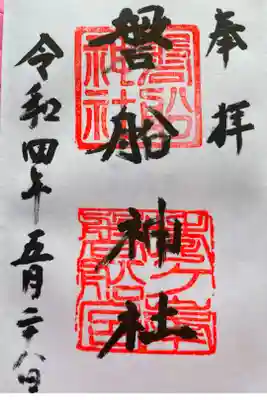 奉拝
磐船神社
令和四年五月二八日